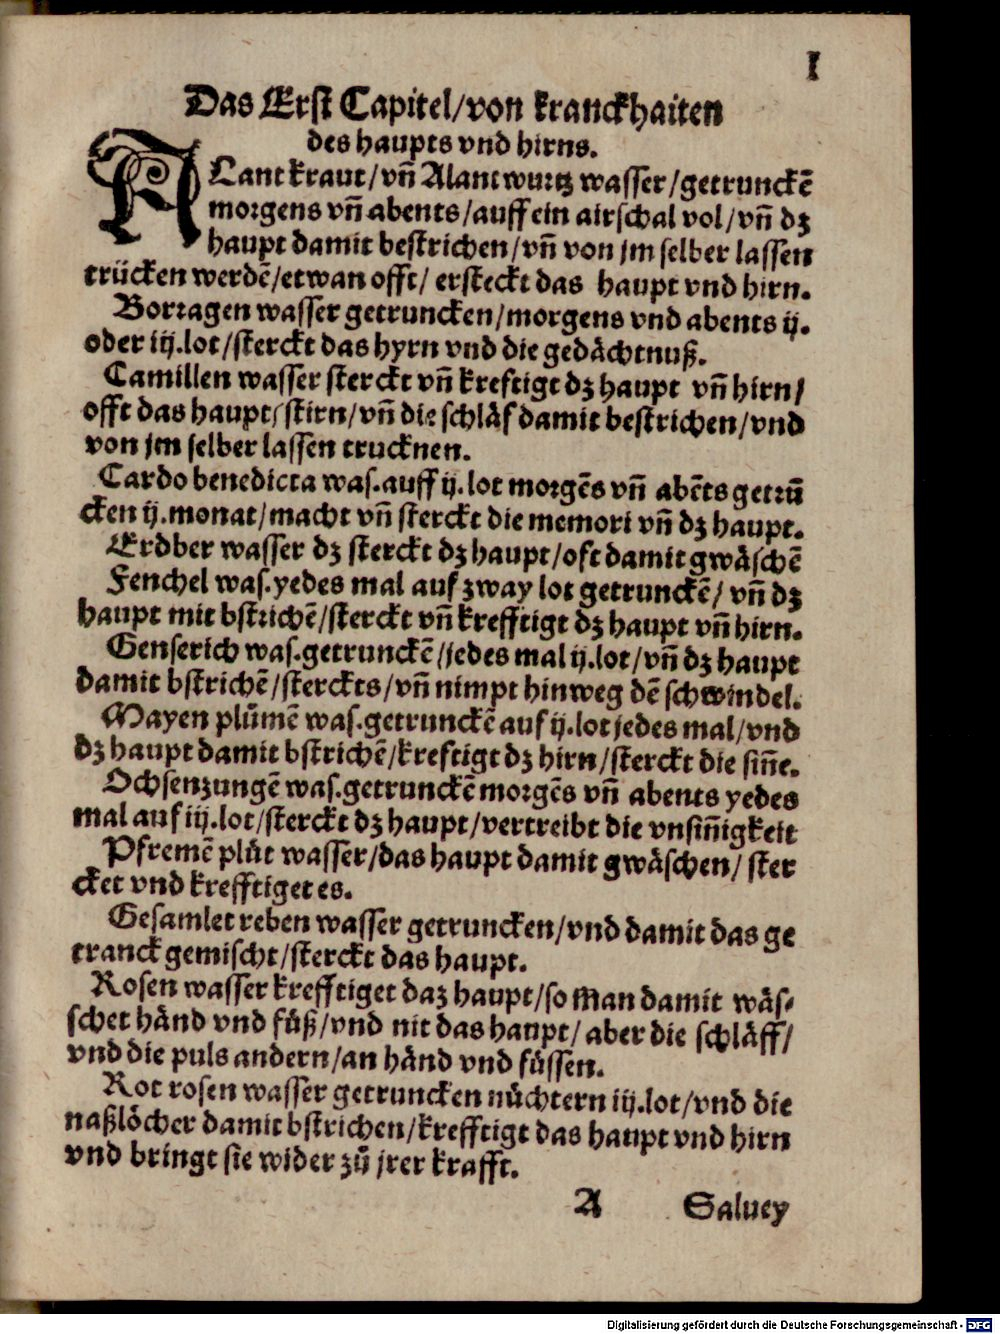 I
Das Erst Capitel/von kranckhaiten
des haupts vnd hirns.
ALant kraut/vñ Alantwurtz wasser/getrunckẽ
morgens vñ abents/auff ein airschal vol/vñ dz
haupt damit bestrichen/vñ von jm selber lassen
trücken werdẽ/etwan offt/ ersteckt das haupt vnd hirn.
Borragen wasser getruncken/morgens vnd abents ij.
oder iij.lot/sterckt das hyrn vnd die gedächtnuß.
Camillen wasser sterckt vñ kreftigt dz haupt vñ hirn/
offt das haupt/stirn/vñ die schläf damit bestrichen/vnd
von jm selber lassen trucknen.
Cardo benedicta was.auff ij.lot morgẽs vñ abẽts getrũ
cken ij.monat/macht vñ sterckt die memori vñ dz haupt.
Erdber wasser dz sterckt dz haupt/oft damit gwäschẽ
Fenchel was.yedes mal auf zway lot getrunckẽ/ vñ dz
haupt mit bstrichẽ/sterckt vñ krefftigt dz haupt vñ hirn.
Genserich was.getrunckẽ/jedes mal ij.lot/vñ dz haupt
damit bstrichẽ/sterckts/vñ nimpt hinweg dẽ schwindel.
Mayen plůmẽ was.getrunckẽ auf ij.lot jedes mal/vnd
dz haupt damit bstrichẽ/kreftigt dz hirn/sterckt die siñe.
Ochsenzungẽ was.getrunckẽ morgẽs vñ abents yedes
mal auf iij.lot/sterckt dz haupt/vertreibt die vnsiñigkeit
Pfremẽ plůt wasser/das haupt damit gwäschen/ ster
cket vnd krefftiget es.
Gesamlet reben wasser getruncken/vnd damit das ge
tranck gemischt/sterckt das haupt.
Rosen wasser krefftiget daz haupt/so man damit wäs⸗
schet händ vnd füß/vnd nit das haupt/ aber die schläff/
vnd die puls andern/an händ vnd füssen.
Rot rosen wasser getruncken nüchtern iij.lot/vnd die
naßlöcher damit bstrichen/krefftigt das haupt vnd hirn
vnd bringt sie wider zů jrer krafft.
A Saluey
Digitalisierung gefördert durch die Deutsche Forschungsgemeinschaft - DFG